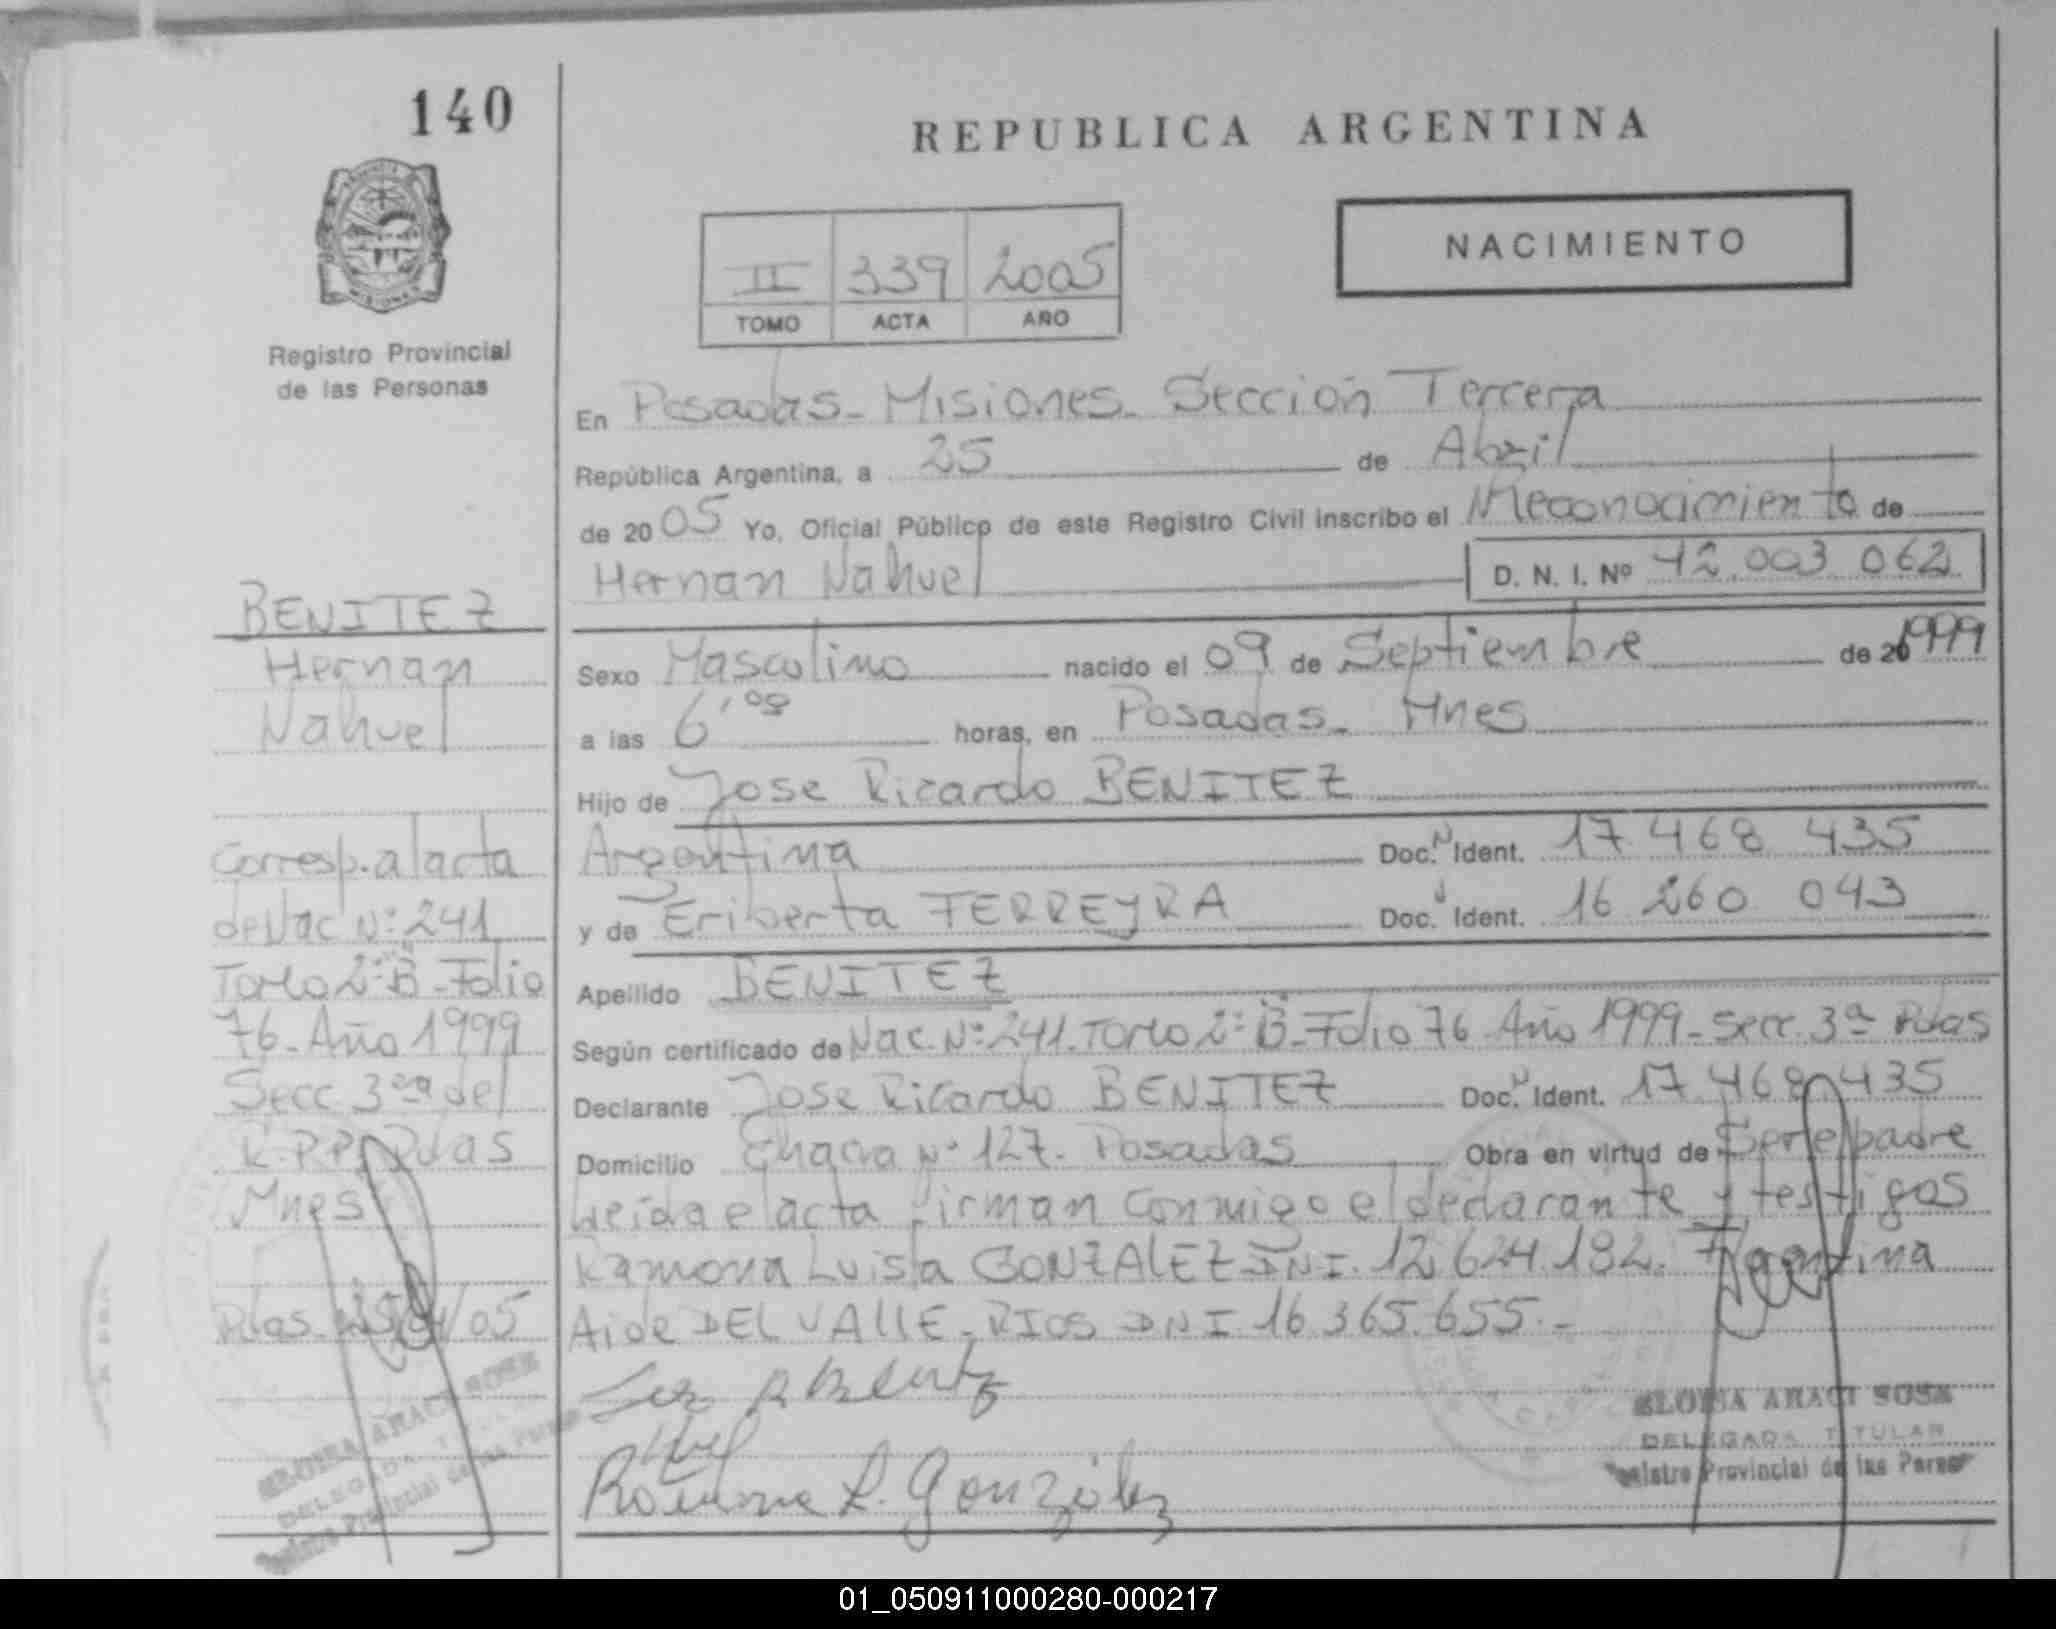 140
REPUBLICA ARGENTINA
NACIMIENTO
II 339 2005
TOMO ACTA AÑO
MISIONES
Registro Provincial
de las Personas
En Posadas - Misiones - Sección Tercera
República Argentina, a 25 de Abril
de 2005 Yo, Oficial Público de este Registro Civil inscribo el Reconocimiento de
Hernan Nahuel D. N. I. Nº 42.003.062
BENITEZ
Hernan
Nahuel
Corresp. al acta
de Nac Nº 241
Tomo 2º "B" - Folio
76 - Año 1999
Secc 3era del
R.P.P. Pdas
Mnes
Pdas 25/04/05
Sexo Masculino nacido el 09 de Septiembre de 1999
a las 6,00 horas, en Posadas - Mnes
Hijo de Jose Ricardo BENITEZ
Argentina Doc. N Ident. 17.468 435
y de Eriberta FERREYRA Doc. Ident. 16 260 043
Apellido BENITEZ
Según certificado de Nac. Nº 241 - Tomo 2º "B" - Folio 76 - Año 1999 - Secc. 3ª Pdas
Declarante Jose Ricardo BENITEZ Doc. N Ident. 17.468 435
Domicilio Chacra Nº 127. Posadas Obra en virtud de Ser el padre
Leída el acta firman conmigo el declarante y testigos
Ramona Luisa GONZALEZ DNI. 12.624.182. Argentina
Aide DEL VALLE - RIOS DNI 16.365.655.-
Ramona L. González
ELOISA ARACI SOSA
DELEGADA TITULAR
Registro Provincial de las Personas
ELOISA ARACI SOSA
DELEGADA TITULAR
Registro Provincial de las Personas
01_050911000280-000217